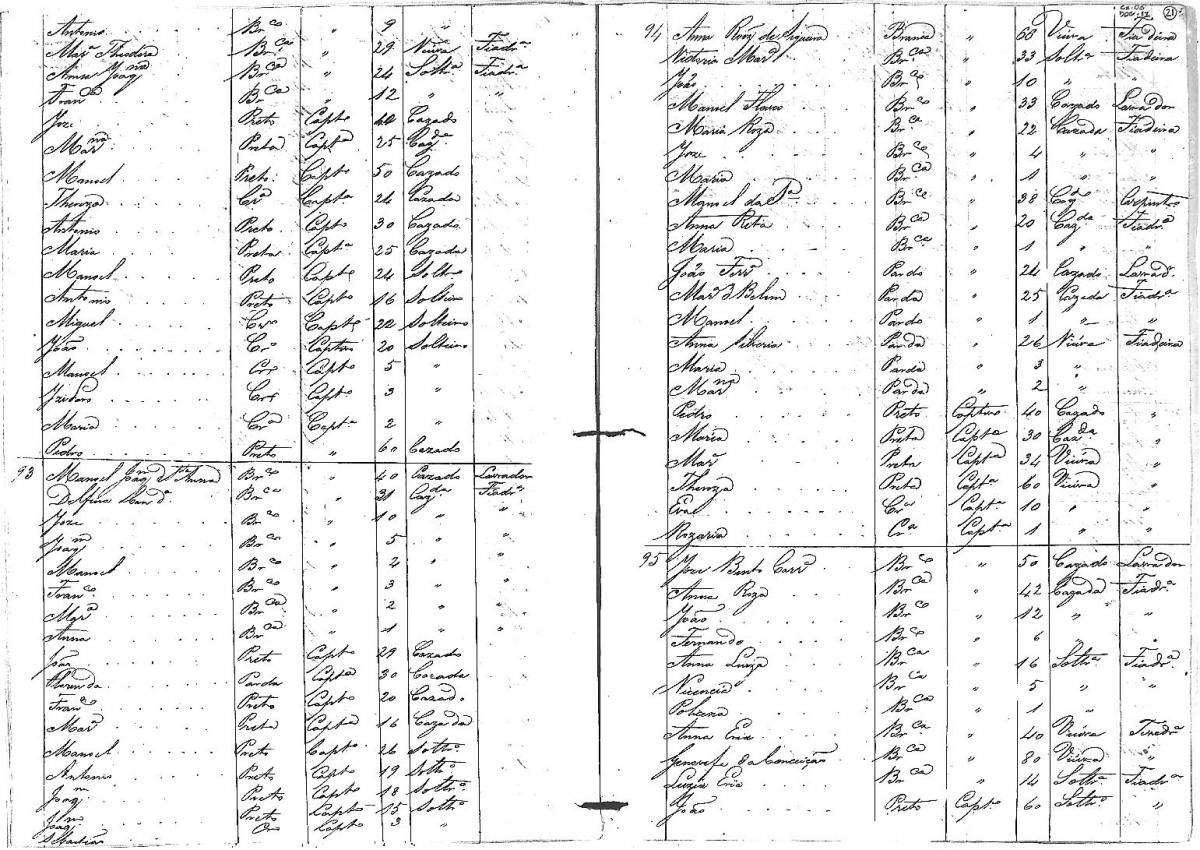 Antonio Br.co " 9 "
Mar.a Theodora Br.ca " 29 Viuva Fiadr.a
Anna Joaq.na Br.ca " 24 Solt.a Fiadr.a
Fran.ca Br.ca " 12 " "
Joze Preto Capt.o Cazado
Mar.na Preta Capt.a 25 Caz.da
Manoel Preto Capt.o 50 Cazado
Thereza Cr.a Capt.a 24 Cazada
Antonio Preto Capt.o 30 Cazado
Maria Preta Capt.a 25 Cazada
Manoel Preto Capt.o 24 Solt.o
Antonio Preto Capt.o 16 Solteiro
Miguel Cr.o Capt.o 22 Solteiro
João Cr.o Captivo 20 Solteiro
Manoel Cr.o Capt.o 5 "
Izidoro Cr.o Capt.o 3 "
Maria Cr.a Capt.a 2 "
Pedro Preto " 60 Cazado
93 Manoel Joaq.m d St.a Anna Br.co " 40 Cazado Lavrador
Delfina Br.ca " 31 Caz.da Fiadr.a
Joze Br.co " 10 " "
Joaq.m Br.co " 5 " "
Manoel Br.co " 2 " "
Fran.co Br.co " 3 " "
Mar.a Br.ca " 2 " "
Anna Br.ca " 1 " "
João Preto Capt.o 29 Cazado
Florinda Parda Capt.a 30 Cazada
Fran.co Preto Capt.o 20 Cazado
Mar.a Preta Capt.a 16 Cazada
Manoel Preto Capt.o 26 Solt.o
Antonio Preto Capt.o 19 Solt.o
Joaq.m Preto Capt.o 18 Solt.o
Joaq.m Preto Capt.o 15 Solt.o
Sebastião Cr.o Capt.o 3 "
21
94 Anna Roiz de Siqueira Branca " 60 Viuva Fiadeira
Victoria Mar.a Br.ca " 33 Solt.a Fiadeira
João Br.co " 10 " "
Manoel Br.co " 33 Cazado Lavrador
Maria Roza Br.ca " 22 Cazada Fiadeira
Joze Br.co " 4 " "
Maria Br.ca " 1 " "
Manoel da Br.co " 38 Caz.do Carpintro
Anna Rita Br.ca " 20 Caz.da Fiadr.a
Maria Br.ca " 1 " "
João Ferr.a Pardo " 24 Cazado Lavrad.r
Mar.a d Belem Parda " 25 Cazada Fiadr.a
Manoel Pardo " 1 " "
Anna Silveria Parda " 26 Viuva Fiadeira
Maria Parda " 3 "
Mar.na Parda " 2 "
Pedro Preto Captivo 40 Cazado "
Maria Preta Capt.a 30 Caz.da "
Mar.a Preta Capt.a 34 Viuva "
Thereza Preta Capt.a 60 Viuva "
Eva Cr.a Capt.a 10 " "
Rozaria C.a Capt.a 1 " "
95 Joze Bento Corr.a Br.co " 50 Cazado Lavrador
Anna Roza Br.ca " 42 Cazada Fiadr.a
João Br.co " 12 " "
Fernando Br.co " 6 " "
Anna Luiza Br.ca " 16 Solt.a Fiadr.a
Vicencia Br.ca " 5 " "
Br.ca " 1 " "
Anna Br.ca " 40 Viuva Fiadr.a
da Conceição Br.ca " 80 Viuva "
Luzia Br.ca " 14 Solt.a Fiadr.a
João Preto Capt.o 60 Solt.o "